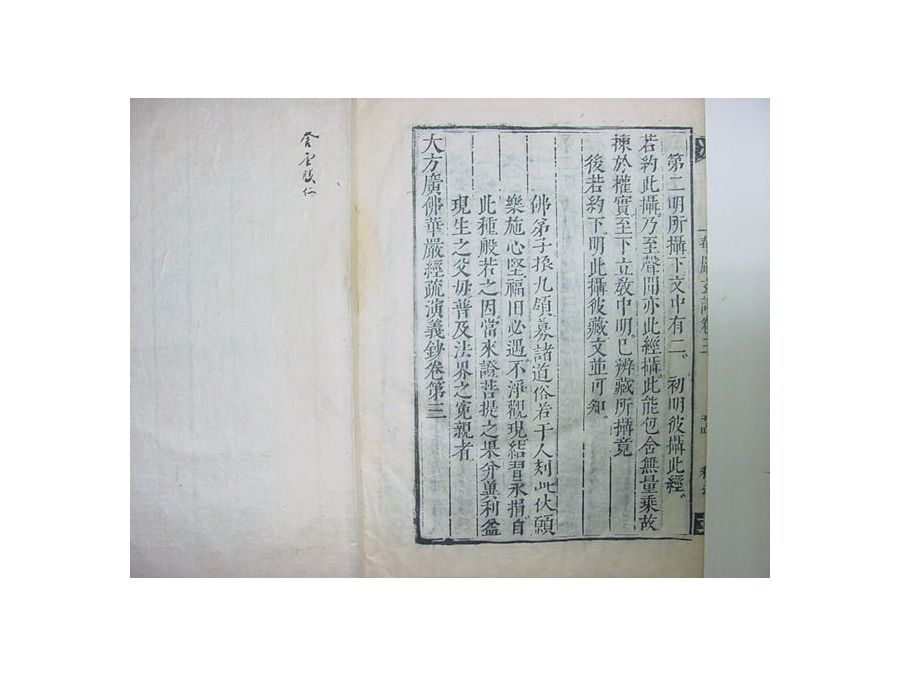 第二明所攝下文中有二。 初明彼攝此經。
若約此攝。乃至聲聞亦此經攝。此能包含無量乗故
揀於權實。至下立敎中明。已辨藏所攝竟
後若約下。明此攝彼藏。文並可知。
佛弟子振九領募諸道俗若干人刻此伏願
樂施心堅。福旧必遇。不淨觀現。結習永捐。自
此種般若之因。當來證菩提之果。分兾利益
現生之父毋。普及法界之寃親者
大方廣佛華嚴經疏演義鈔卷第三